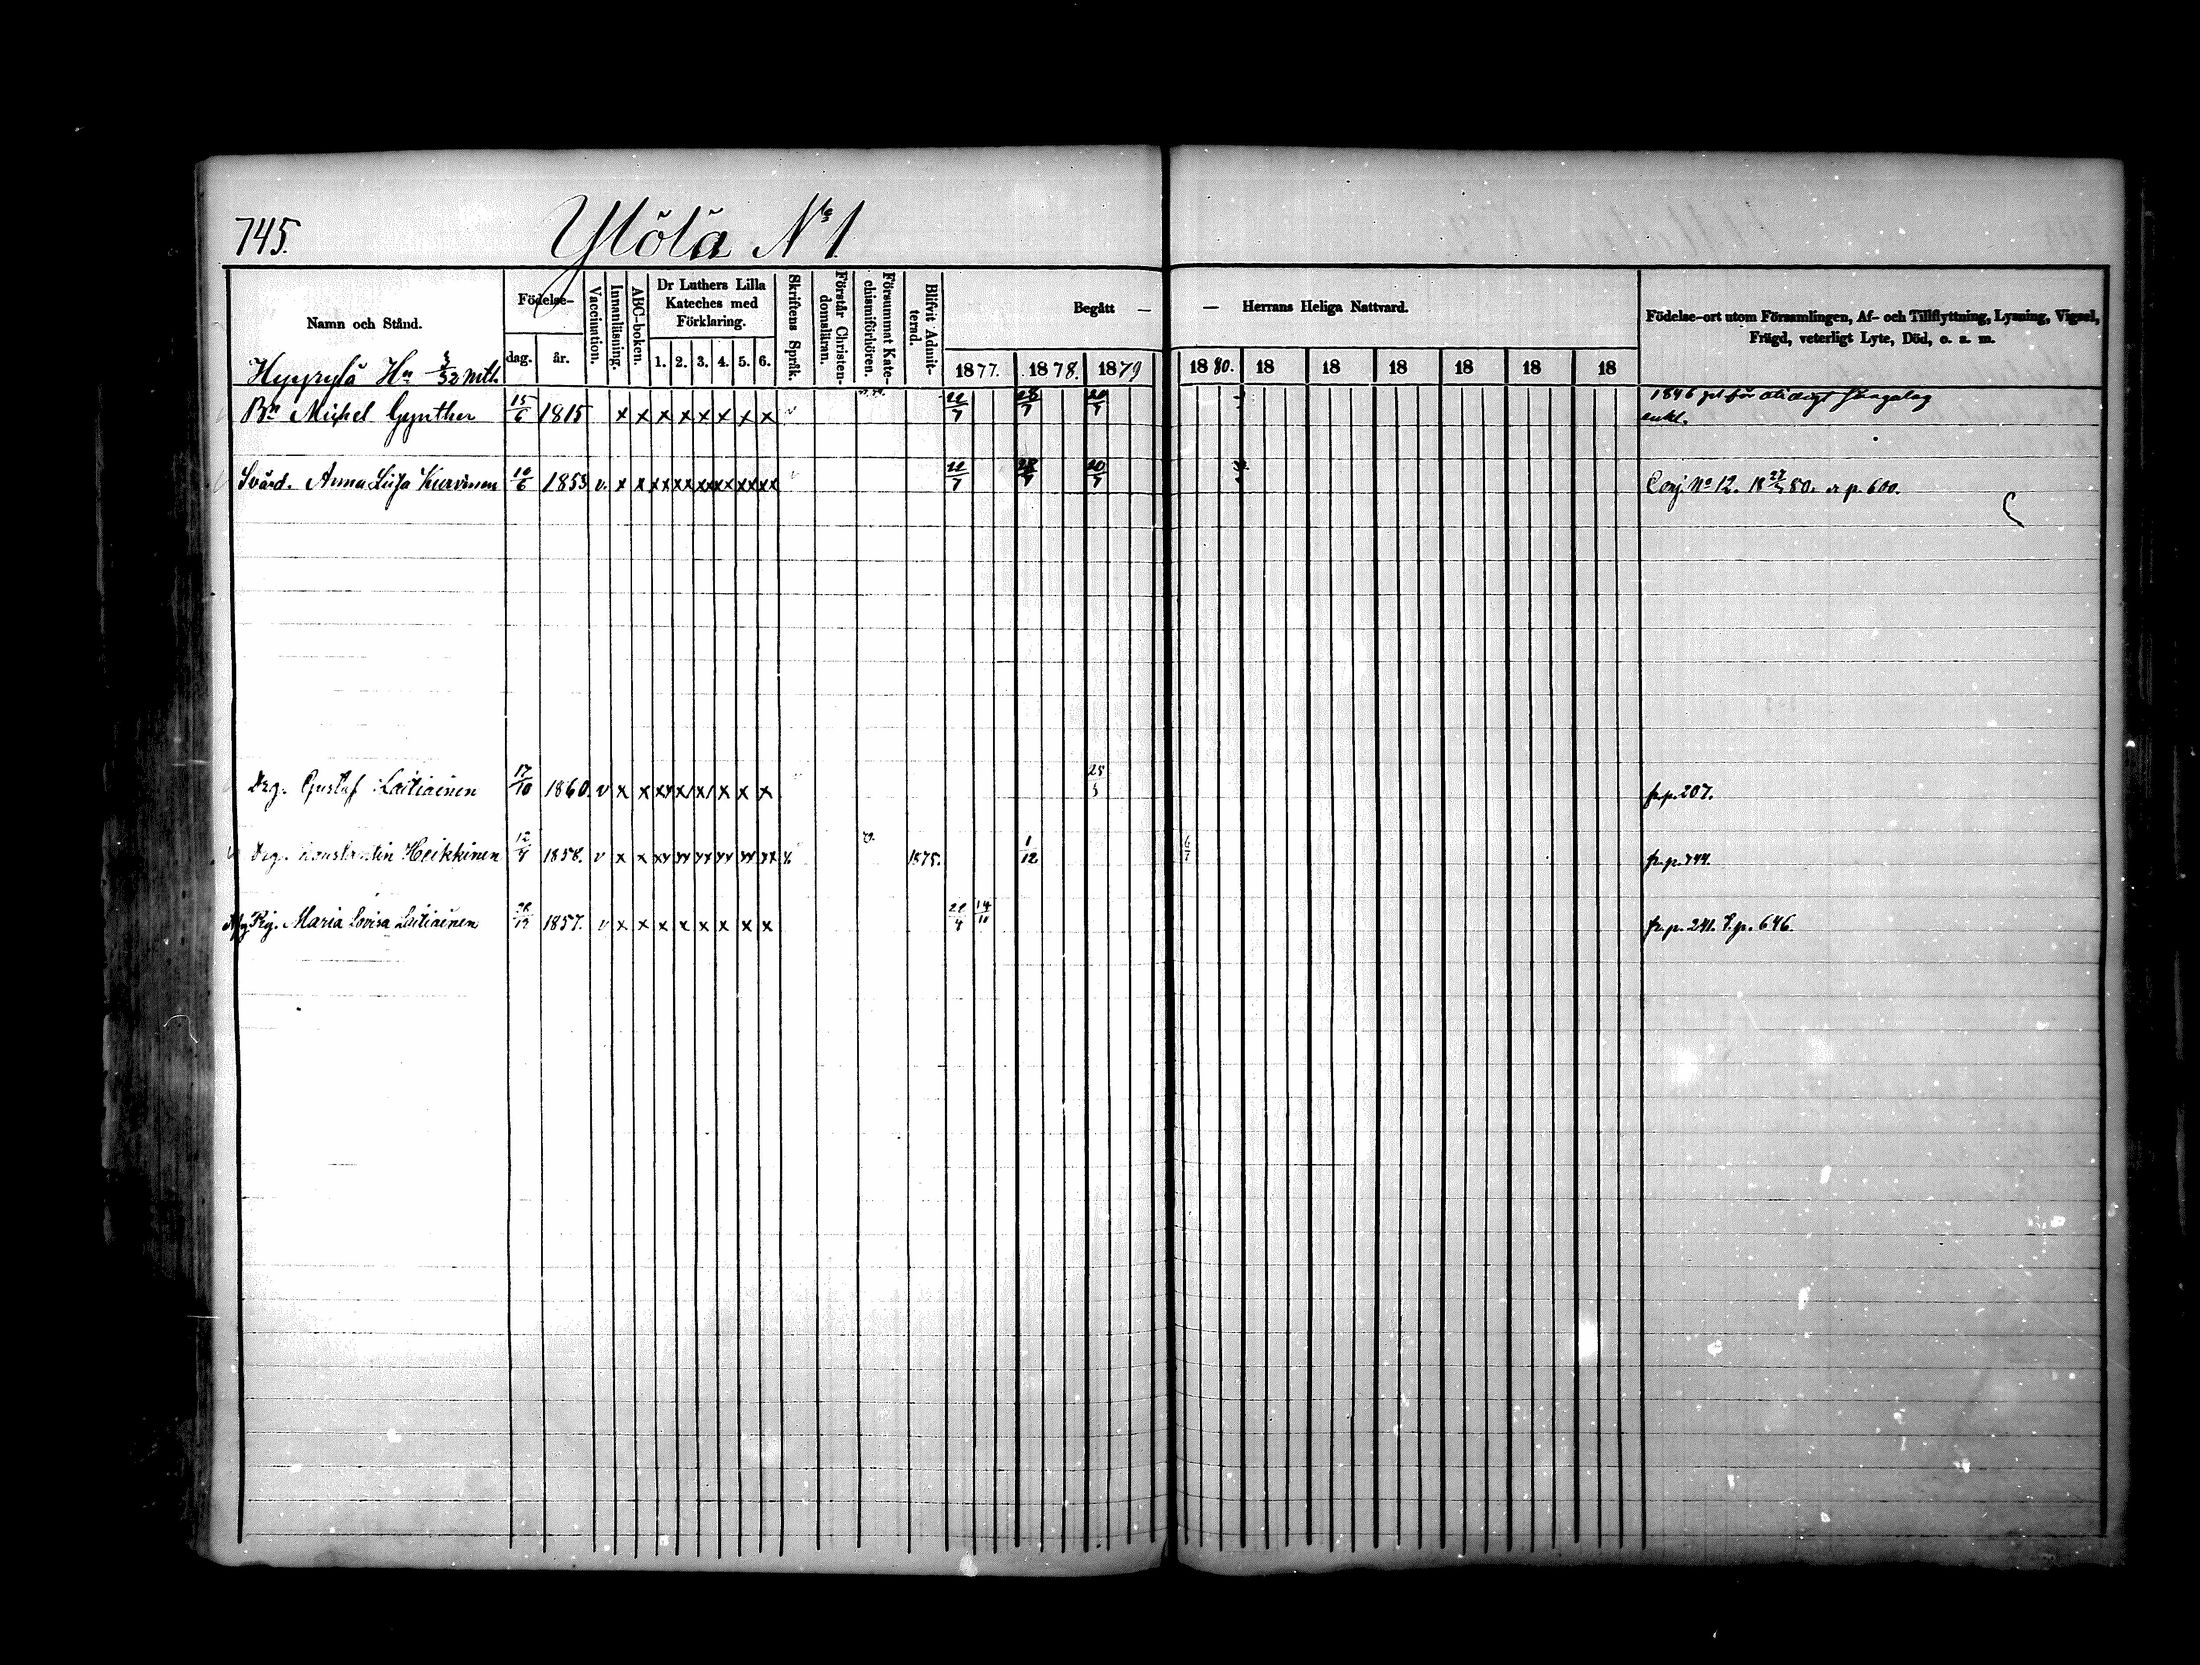 745. Ylölä No 1
Namn och Stånd.
Födelse-
dag.
år.
Vaccination.
Innanläsning.
ABC-boken.
Dr Luthers Lilla
Kateches med
Förklaring.
1. 2. 3. 4. 5. 6.
Skriftens Språk.
Förstår Christen-
domsläran.
Försummat Kate-
chismiförhören.
Blifvit Admit-
terad.
Begått — — Herrans Heliga Nattvard.
1877. 1878. 1879 1880. 18 18 18 18 18 18
Födelse-ort utom Församlingen, Af- och Tillflyttning, Lysning, Vigsel,
Frägd, veterligt Lyte, Död, o. s. m.
Hn 3/32 mtl.
Bn Michel Gynther 15/6 1815 x x x x x x x x 22/7 28/7 20/7 1846 för
enkl.
Svärd. Anna Luisa Kurvinen 10/6 1853 v. x x xx xx xx xx xx xx 22/7 28/7 20/7 Conj. No 12. 18 80. p. 600.
Drg. Gustaf Laitiainen 17/10 1860. v x x x x x 25/5 fr. p. 207.
Drg. Konstantin Heikkinen 12/4 1858. v x x xx xx xx xx xx xx 1875. 1/12 6/7 fr. p. 744.
Pig. Maria Lovisa Laitiainen 1857. v x x x x x x x x 22/4 14/10 fr. p. 241. t. p. 646.